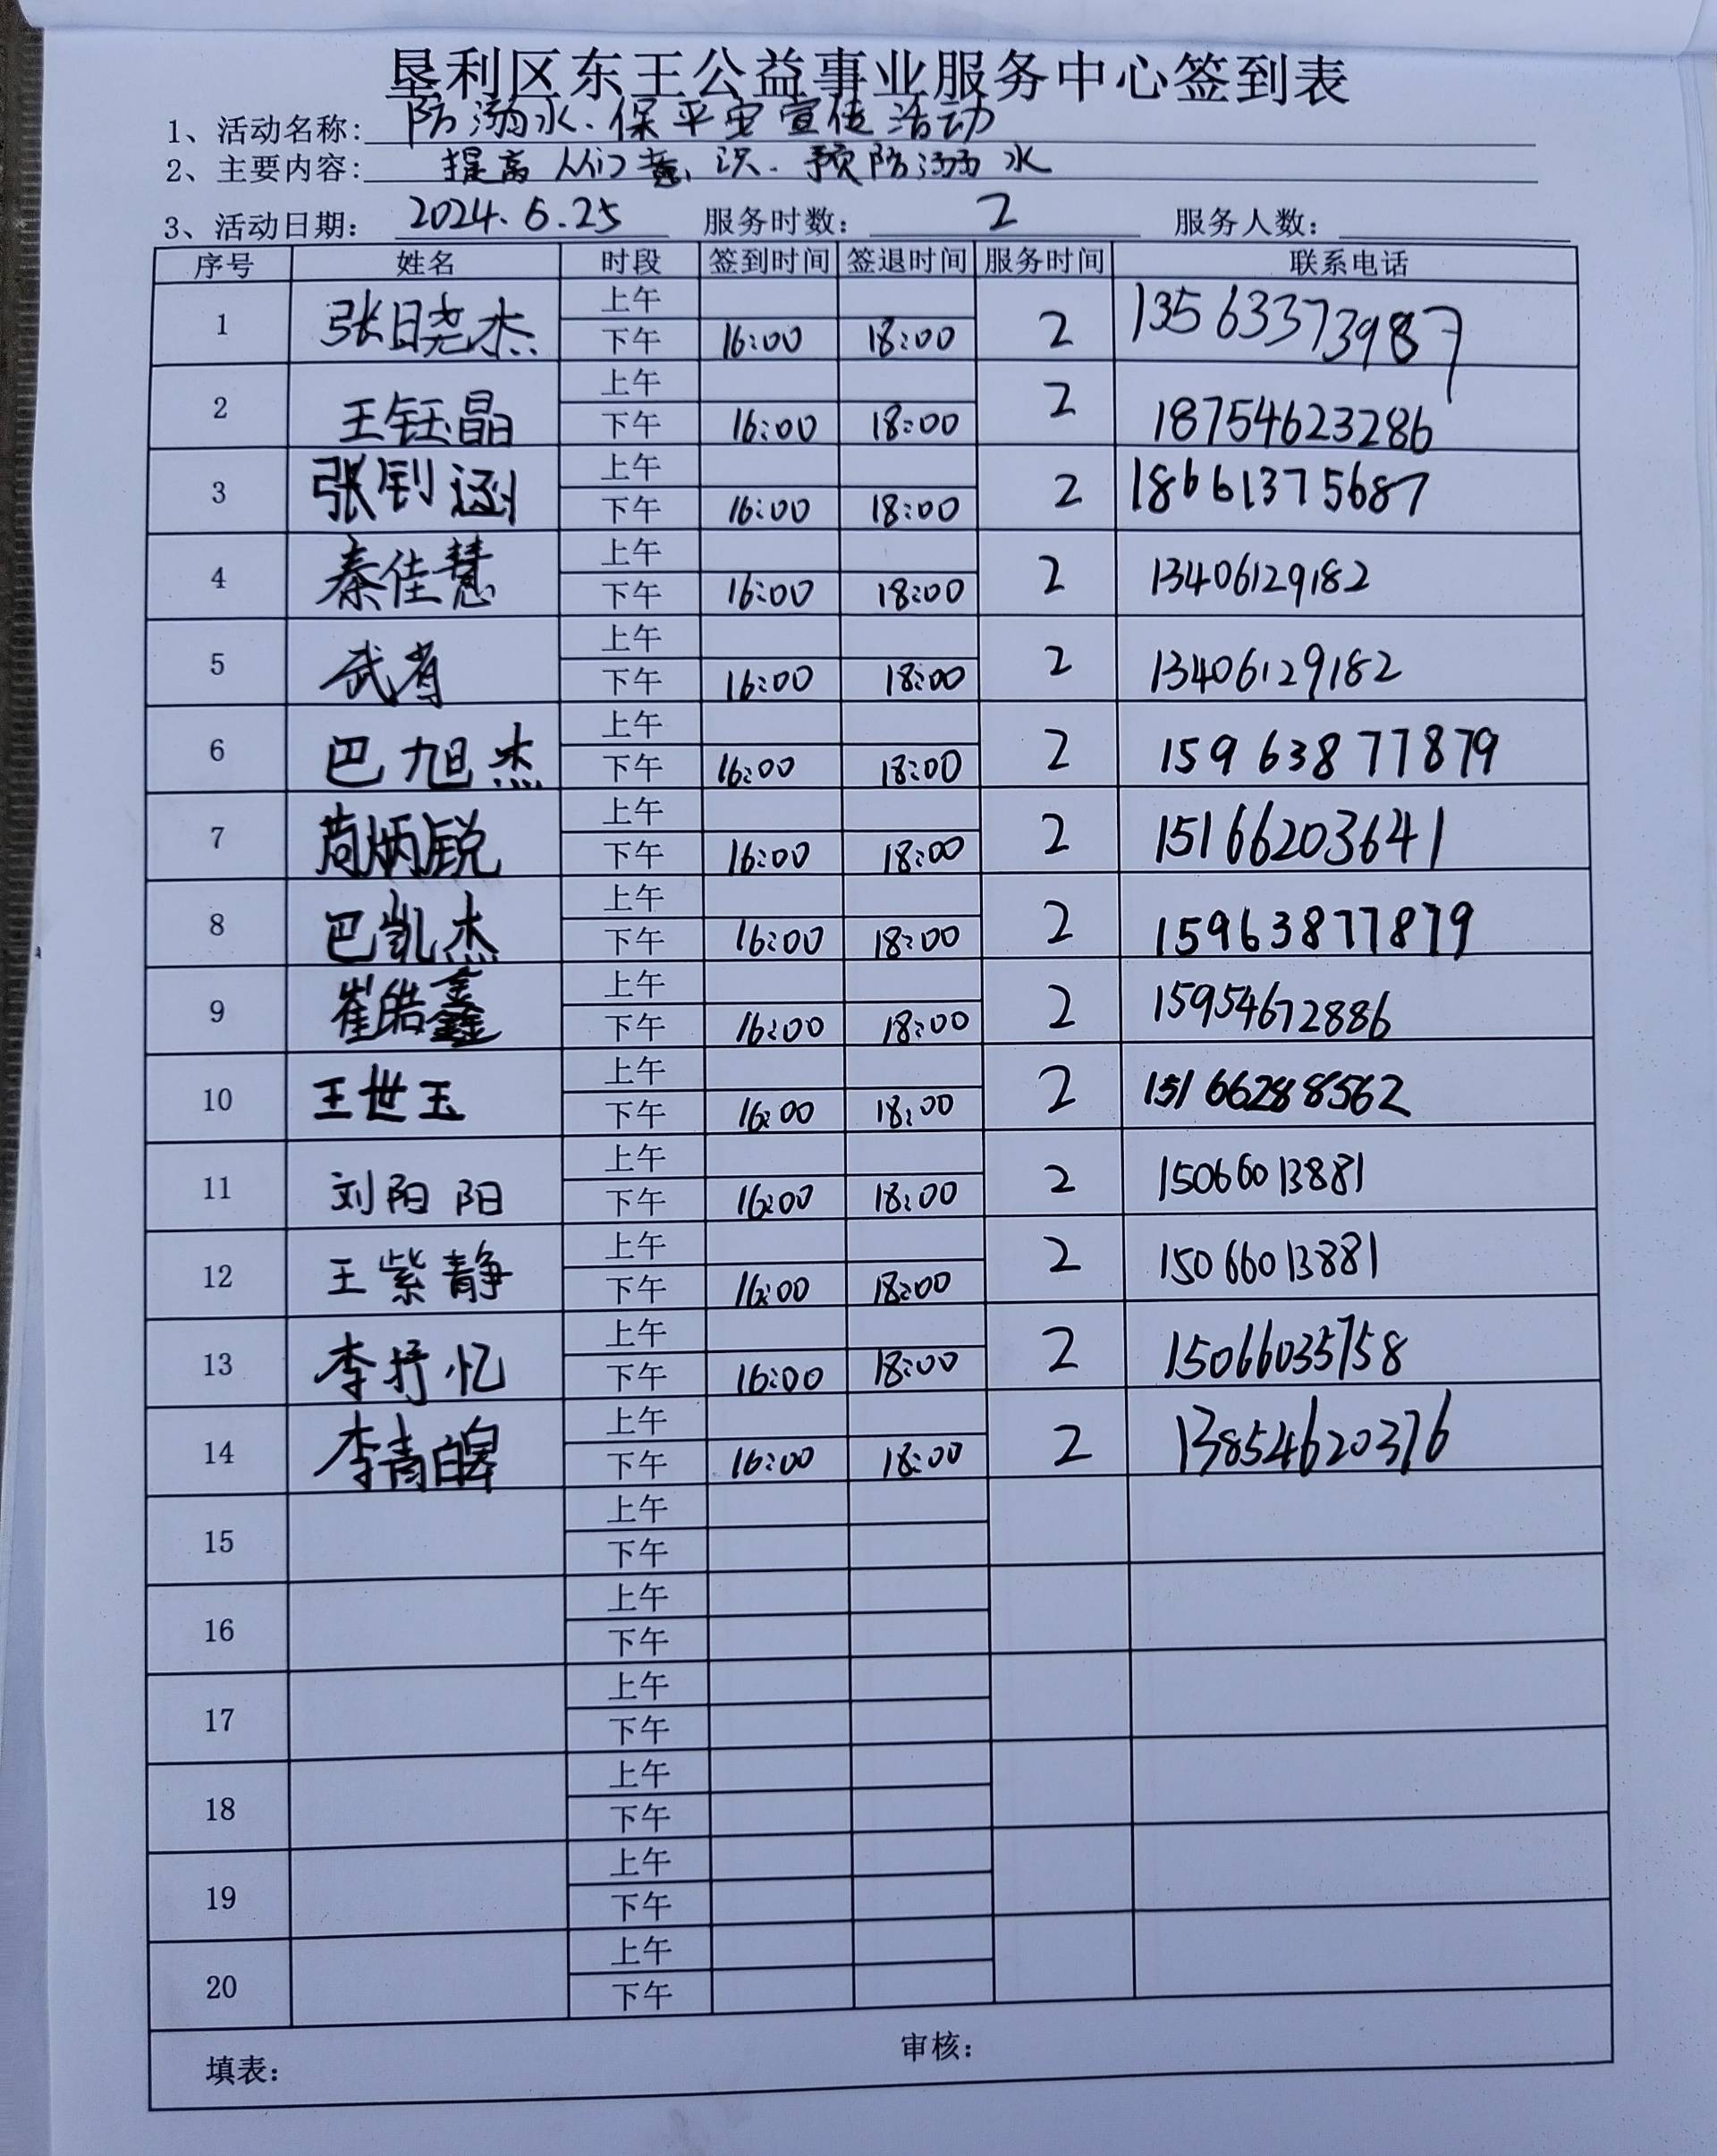 垦利区东王公益事业服务中心签到表
1、活动名称: 防溺水.保平安宣传活动
2、主要内容: 提高人们意识.预防溺水
3、活动日期: 2024.6.25 服务时数: 2 服务人数:
序号 姓名 时段 签到时间 签退时间 服务时间 联系电话
上午
1 张晓杰 2 13563373987
下午 16:00 18:00
上午
2 王钰晶 2 18754623286
下午 16:00 18:00
上午
3 张钊涵 2 18661375687
下午 16:00 18:00
上午
4 秦佳慧 2 13406129182
下午 16:00 18:00
上午
5 武肖 2 13406129182
下午 16:00 18:00
上午
6 巴旭杰 2 15963877879
下午 16:00 18:00
上午
7 苘炳锐 2 15166203641
下午 16:00 18:00
上午
8 巴凯杰 2 15963877879
下午 16:00 18:00
上午
9 崔皓鑫 2 15954672886
下午 16:00 18:00
上午
10 王世玉 2 15166288562
下午 16:00 18:00
上午
11 刘阳阳 2 15066013881
下午 16:00 18:00
上午
12 王紫静 2 15066013881
下午 16:00 18:00
上午
13 李抒忆 2 15066035758
下午 16:00 18:00
上午
14 李青 2 13854620376
下午 16:00 18:00
上午
15
下午
上午
16
下午
上午
17
下午
上午
18
下午
上午
19
下午
上午
20
下午
填表: 审核: